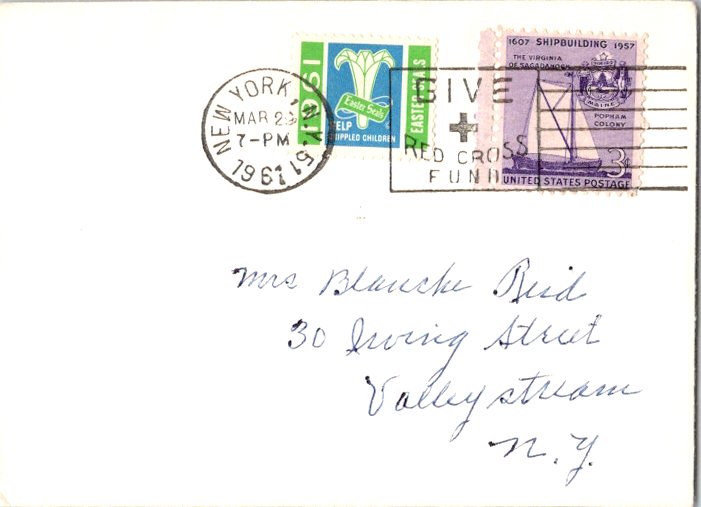 NEW YORK, N.Y. 51
MAR 29
7-PM
1961
1961
Easter Seals
HELP
CRIPPLED CHILDREN
EASTER SEALS
GIVE
RED CROSS
FUND
1607 SHIPBUILDING 1957
THE VIRGINIA
OF SAGADAHOCK
MAINE
POPHAM
COLONY
3¢
UNITED STATES POSTAGE
Mrs Blanche Reid
30 Irving Street
Valley stream
N.Y.